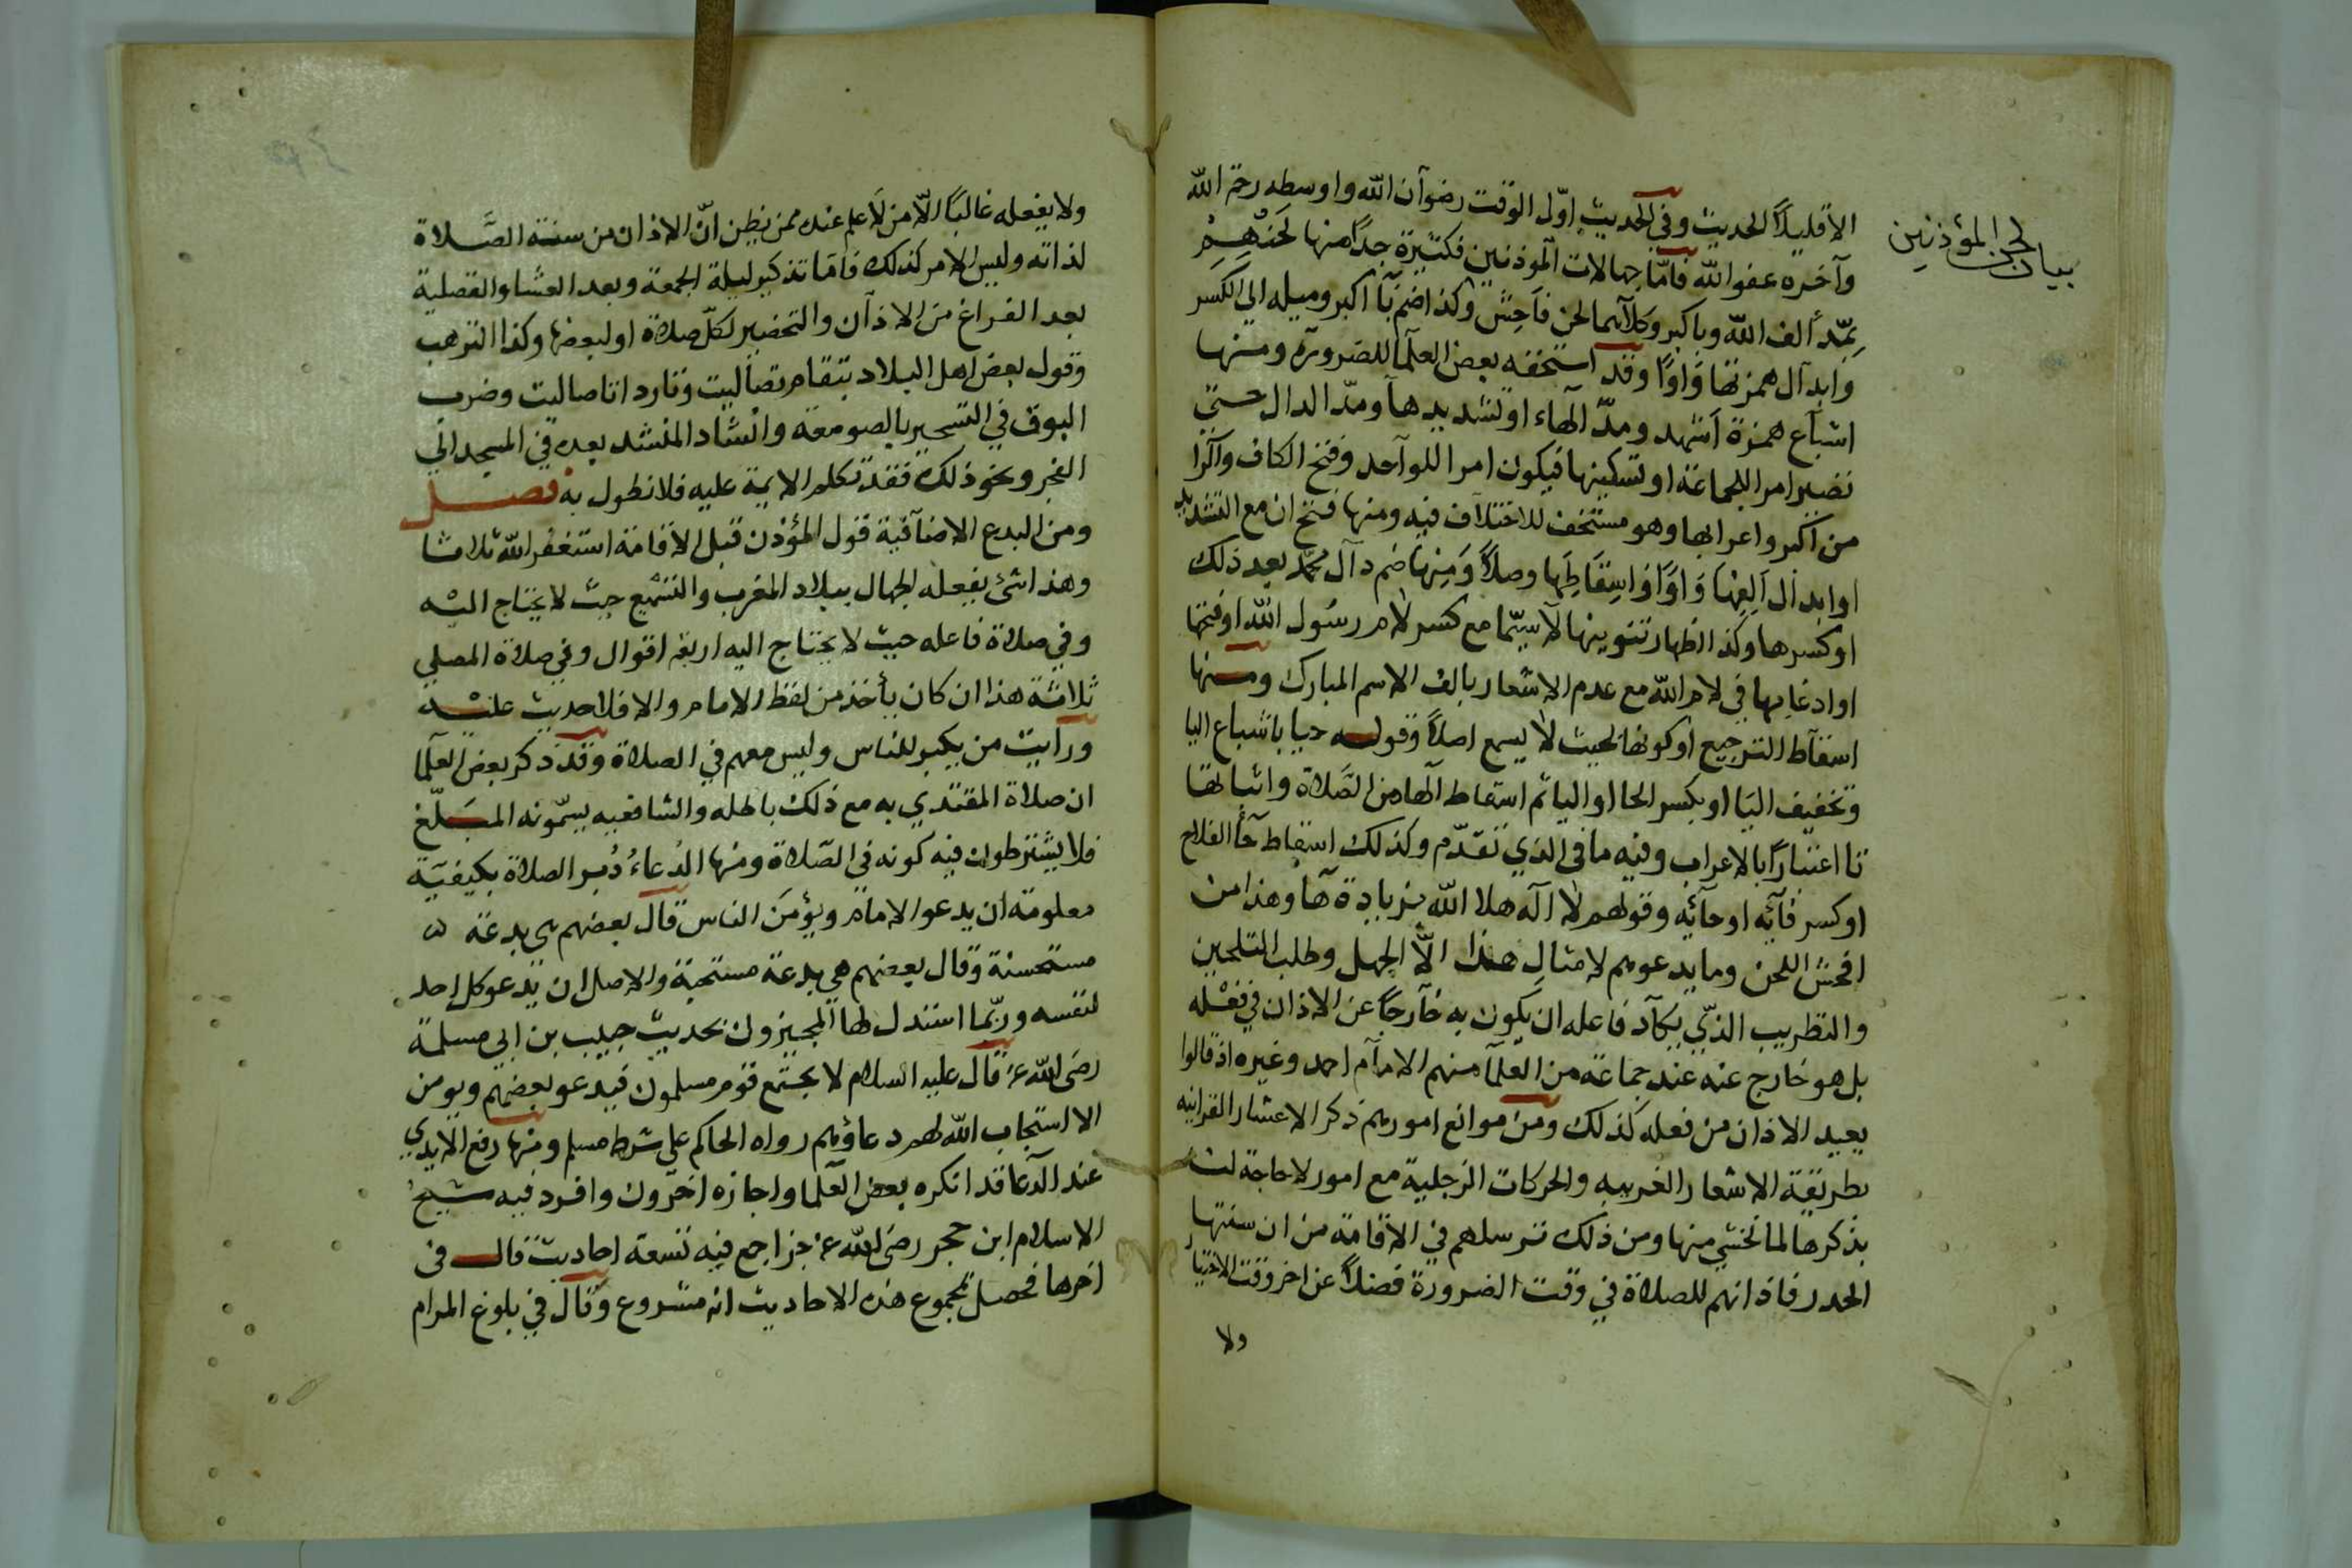 بيان لحن المؤذنين
الا قليلاً الحديث وفي الحديث اوّل الوقت رضوان الله واوسطه رحمة الله
وآخره عفو الله فامّا جهالات المؤذنين فكثيرة جداً منها لَحنُهم
بمدّ الف الله وبا اكبر وكلاهما لحن فاحش وكذا ضم با اكبر وميله الي الكسر
وابدال همزتها واوًا وقد استخفه بعض العلما للضرورة ومنها
اشباع همزة اشهد ومدّ الهاء او تشديدها ومدّ الدال حتي
تصير امرا للجماعة او تسكينها فيكون امرا للواحد وفتح الكاف والرا
من اكبر واعرابها وهو مستخف للاختلاف فيه ومنها فتح ان مع التشديد
او ابدال الفها واوًا واسقاطها وصلاً ومنها ضم دال محمّد بعد ذلك
او كسرها وكذا اظهار تنوينها لا سيّما مع كسر لام رسول الله او فتحها
او ادغامها في لام الله مع عدم الاشعار بالف الاسم المبارك ومنها
اسقاط الترجيع او كونه بحيث لا يسمع اصلاً وقوله حيا باشباع اليا
وتخفيف اليا او بكسر الحا او اليا ثم اسقاط الها من الصّلاة واثباتها
تا اعتباراً بالاعراب وفيه ما في الذي تقدّم وكذلك اسقاط حاء الفلاح
او كسر فآئه او حآئه وقولهم لا اله هلا الله بزيادة ها وهذا من
افحش اللحن وما يدعوهم لامثالِ هذا الّا الجهل وطلب التلحين
والتطريب الذي يكاد فاعله ان يكون به خارجاً عن الاذان في فعله
بل هو خارج عنه عند جماعة من العلما منهم الامام احمد وغيره اذ قالوا
يعيد الاذان من فعله كذلك ومن موانع امورهم ذكر الاعشار القرانيه
بطريقة الاشعار الغريبه والحركات الزجلية مع امور لا حاجة لنا
بذكرها لما نخشي منها ومن ذلك ترسلهم في الاقامة من ان سنتها
الحدر فاذانهم للصلاة في وقت الضرورة فضلاً عن اخر وقت الاختيار
ولا
ولا يفعله غالباً الّا من لا علم عنده ممن يظن انّ الاذان من سنة الصّلاة
لذاته وليس الامر كذلك فامّا تذكير ليلة الجمعة وبعد العشا والتصلية
بعد الفراغ من الاذان والتحضير لكلّ صلاة او لبعضها وكذا الترهيب
وقول بعض اهل البلاد بتقام تصاليت وتارد اتاصاليت وضرب
البوق في التسحير بالصومعة وانشاد المنشد بعده في المسجد الي
الفجر ونحو ذلك فقد تكلم الايمة عليه فلا نطول به فصل
ومن البدع الاضافية قول المؤذن قبل الاقامة استغفر الله ثلاثا
وهذا شئ يفعله الجهال ببلاد المغرب والتسميع حيث لا يحتاج اليه
وفي صلاة فاعله حيث لا يحتاج اليه اربعة اقوال وفي صلاة المصلي
ثلاثة هذا ان كان يأخذ من لفظ الامام والا فلا حديث عليه
ورأيت من يكبر للناس وليس معهم في الصلاة وقد ذكر بعض العلما
ان صلاة المقتدي به مع ذلك باطله والشافعيه يسمّونه المبَلّغ
فلا يشترطون فيه كونه في الصّلاة ومنها الدعاءُ دُبر الصلاة بكيفيّة
معلومة ان يدعو الامام ويؤمن الناس قال بعضهم هي بدعة
مستحسنة وقال بعضهم هي بدعة مستحبة والاصل ان يدعو كل احد
لنفسه وربّما استدل لها المجيزون بحديث حبيب بن ابي مسلمة
رضي الله عنه قال عليه السلام لا يجتمع قوم مسلمون فيدعو بعضهم ويومن
الا استجاب الله لهم دعاؤهم رواه الحاكم علي شرط مسلم ومنها رفع الايدي
عند الدعا قد انكره بعض العلما واجازه اخرون وافرد فيه شيخ
الاسلام ابن حجر رضي الله عنه جزا جمع فيه تسعة احاديث قال في
اخرها فحصل بمجموع هذه الاحاديث انه مشروع وقال في بلوغ المرام